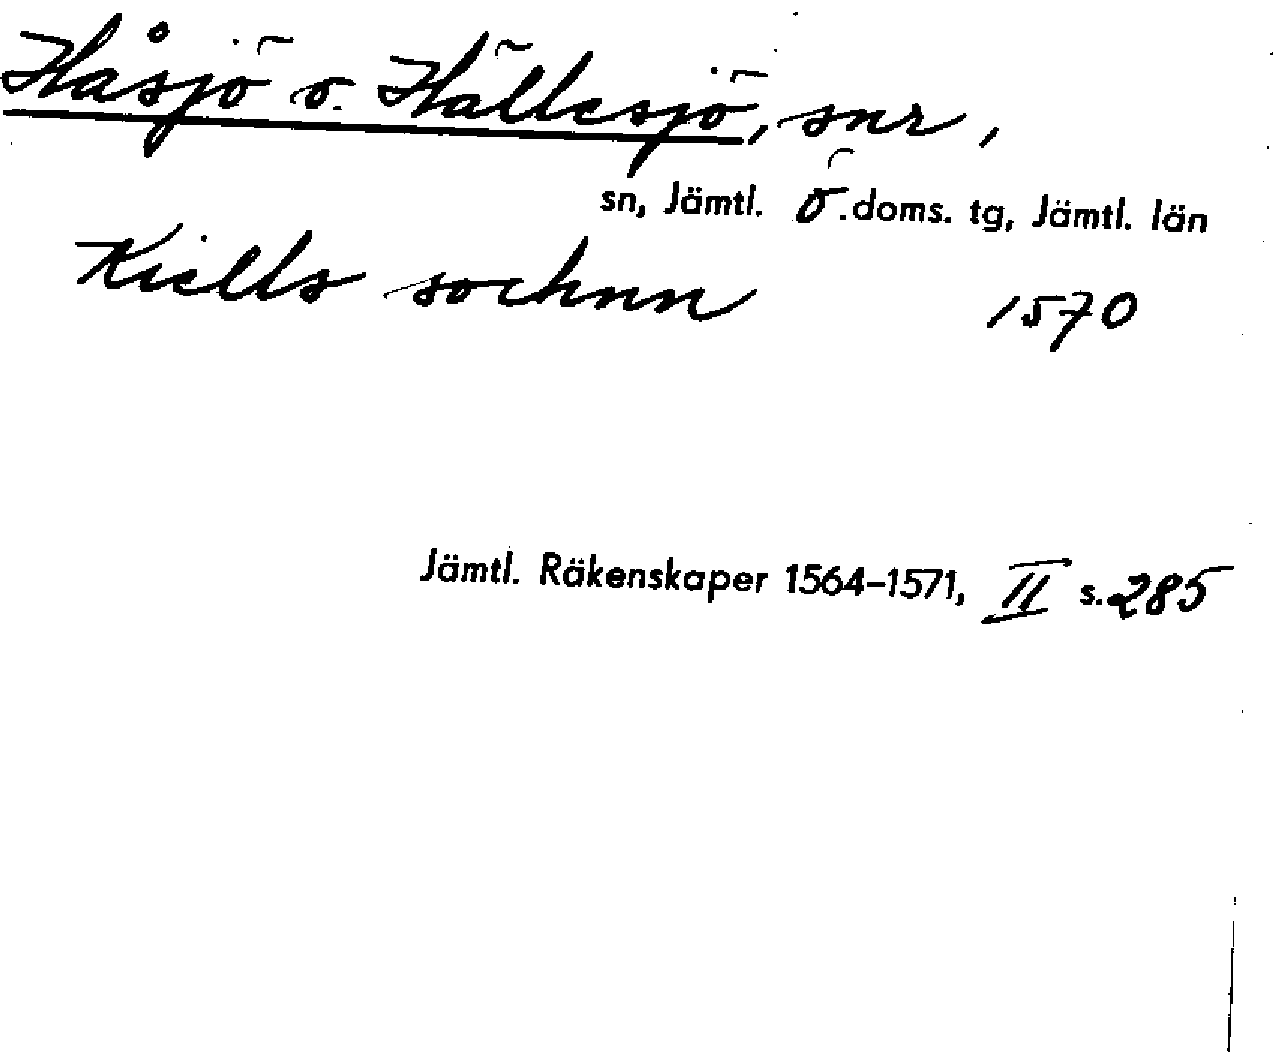 Håsjö o. Hällesjö, snr,
sn, Jämtl. ö.doms. tg, Jämtl. län
Kiells sochnn 1570
Jämtl. Räkenskaper 1564–1571, II s. 285